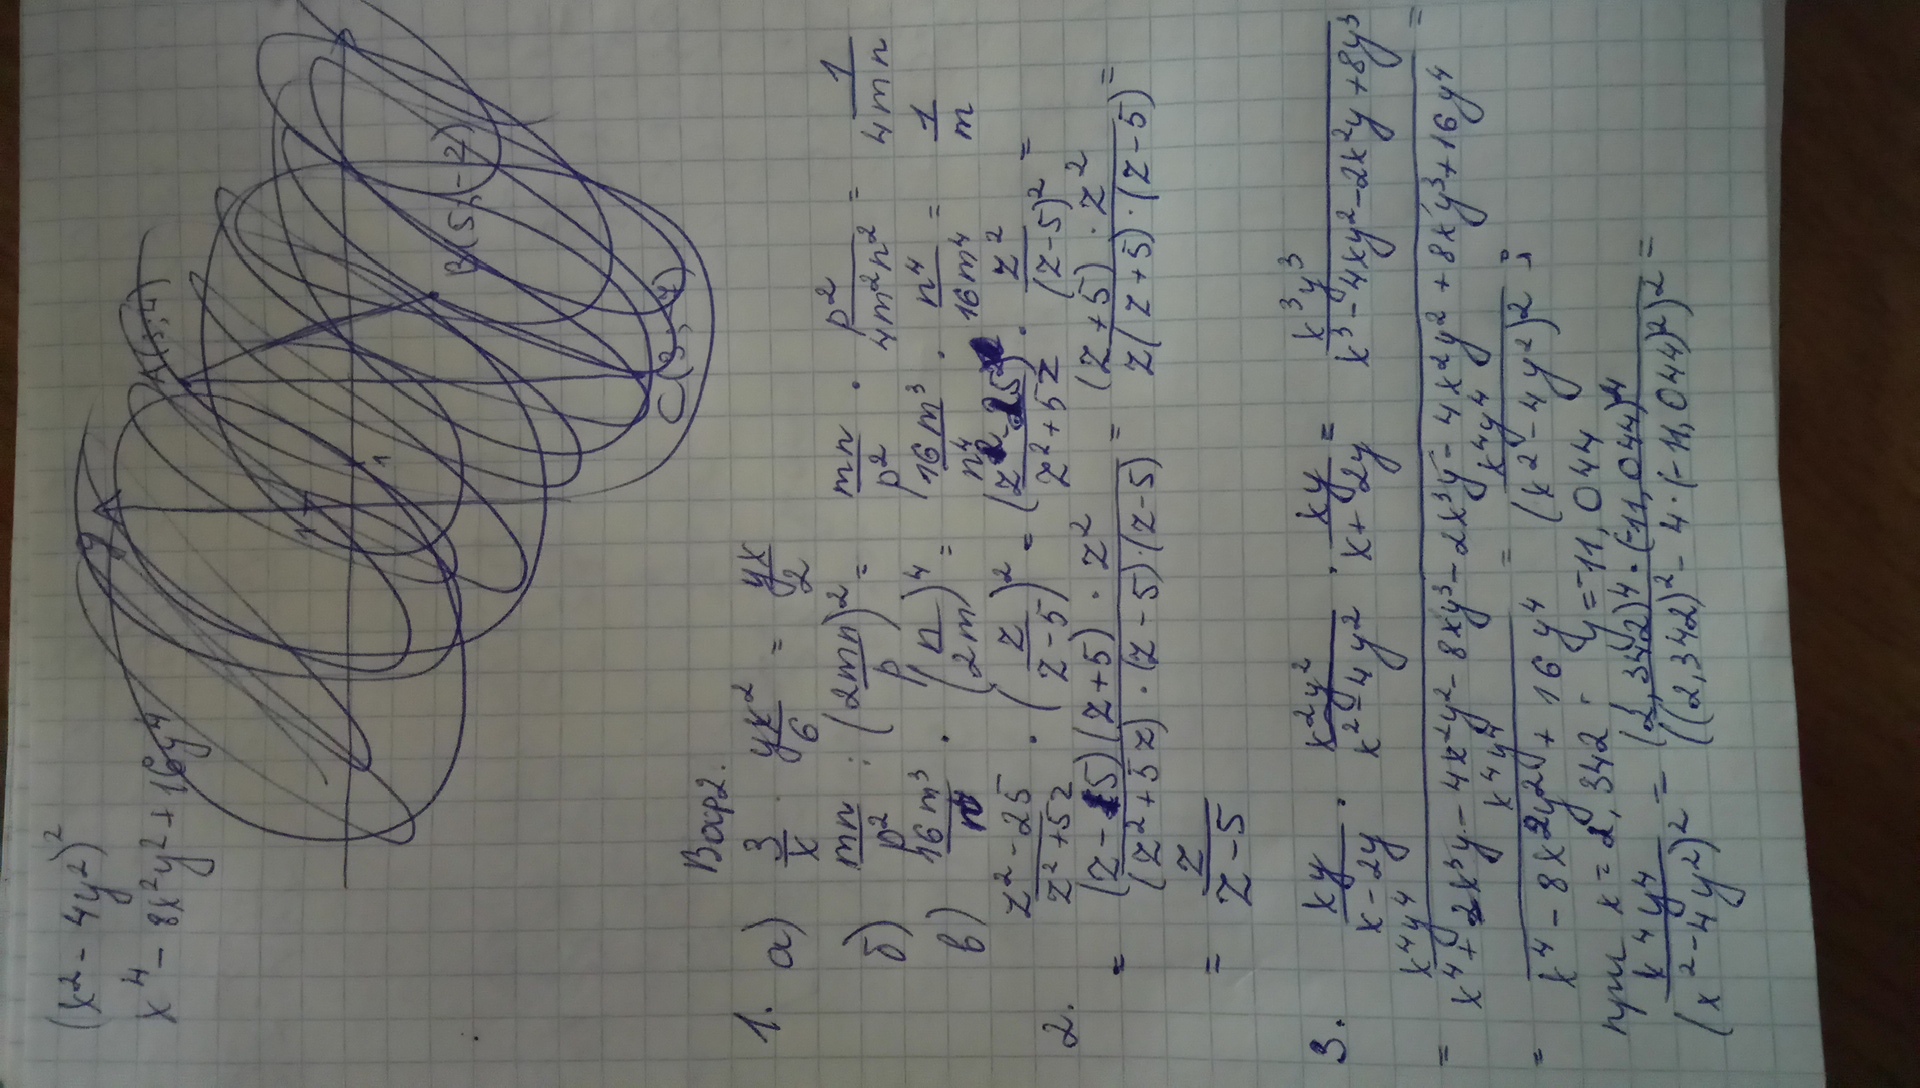 (x² - 4y²)²
x⁴ - 8x²y² + 16y⁴
y
1
1
A(3; 4)
B(5; -2)
Вар2.
1. а) 3/x · yx²/6 = yx/2
б) mn/p² : (2mn/p)² = mn/p² · p²/4m²n² = 1/4mn
в) 16m³/n⁴ · (n/2m)⁴ = 16m³/n⁴ · n⁴/16m⁴ = 1/m
2. z²-25/z²+5z · (z/z-5)² = (z²-25)/z²+5z · z²/(z-5)² =
= (z-5)(z+5) · z²/(z²+5z) · (z-5) · (z-5) = (z+5) · z²/z(z+5) · (z-5) =
= z/z-5
3. xy/x-2y · x²y²/x²-4y² · xy/x+2y = x³y³/x³-4xy²-2x²y+8y³
= x⁴y⁴/x⁴+2x³y-4x²y²-8xy³-2x³y-4x²y²+8xy³+16y⁴ =
= x⁴y⁴/x⁴-8x²y²+16y⁴ = x⁴y⁴/(x²-4y²)² ;
при x = 2,342 · y = -11,044
x⁴y⁴/(x²-4y²)² = (2,342)⁴·(-11,044)⁴/((2,342)²-4·(-11,044)²)² =